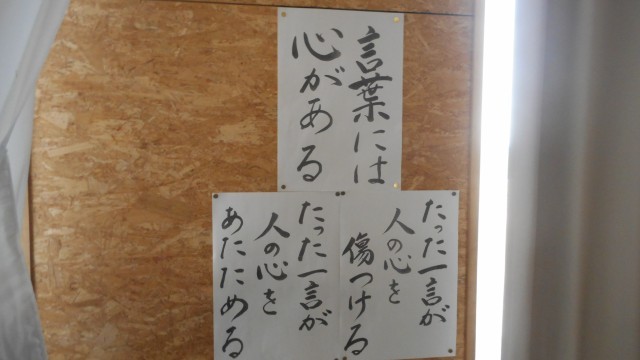 言葉には
心がある
たった一言が
人の心を
傷つける
たった一言が
人の心を
あたためる